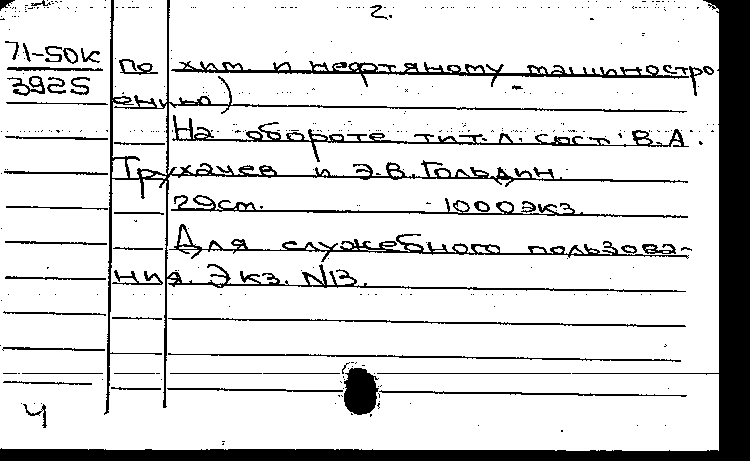 2.
71-50к
3925
по хим и нефтяному машиностро
ению)
На обороте тит. л. сост: В.А.
Трухачев и Э.В. Гольдин.
29см. 1000экз.
Для служебного пользова-
ния. Экз. N13.
Ч